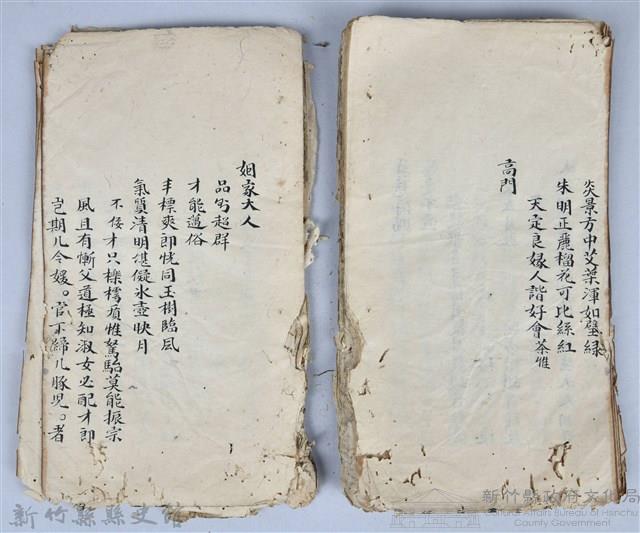 炎景方中艾葉渾如璧緑
朱明正麗榴花可比絲紅
天定良縁人諧好會荼惟
高門
姻家大人
品望超群
才能邁俗
丰標爽郎恍同玉樹臨風
氣質清明堪儗氷壺映月
不佞才只櫟樗質惟駑駘莫能振宗
風且有慚父道極知淑女必配才郎
豈期儿令媛。官不締儿豚児。者
新竹縣縣史館
新竹縣政府文化局
Cultural Affairs Bureau of Hsinchu
County Government